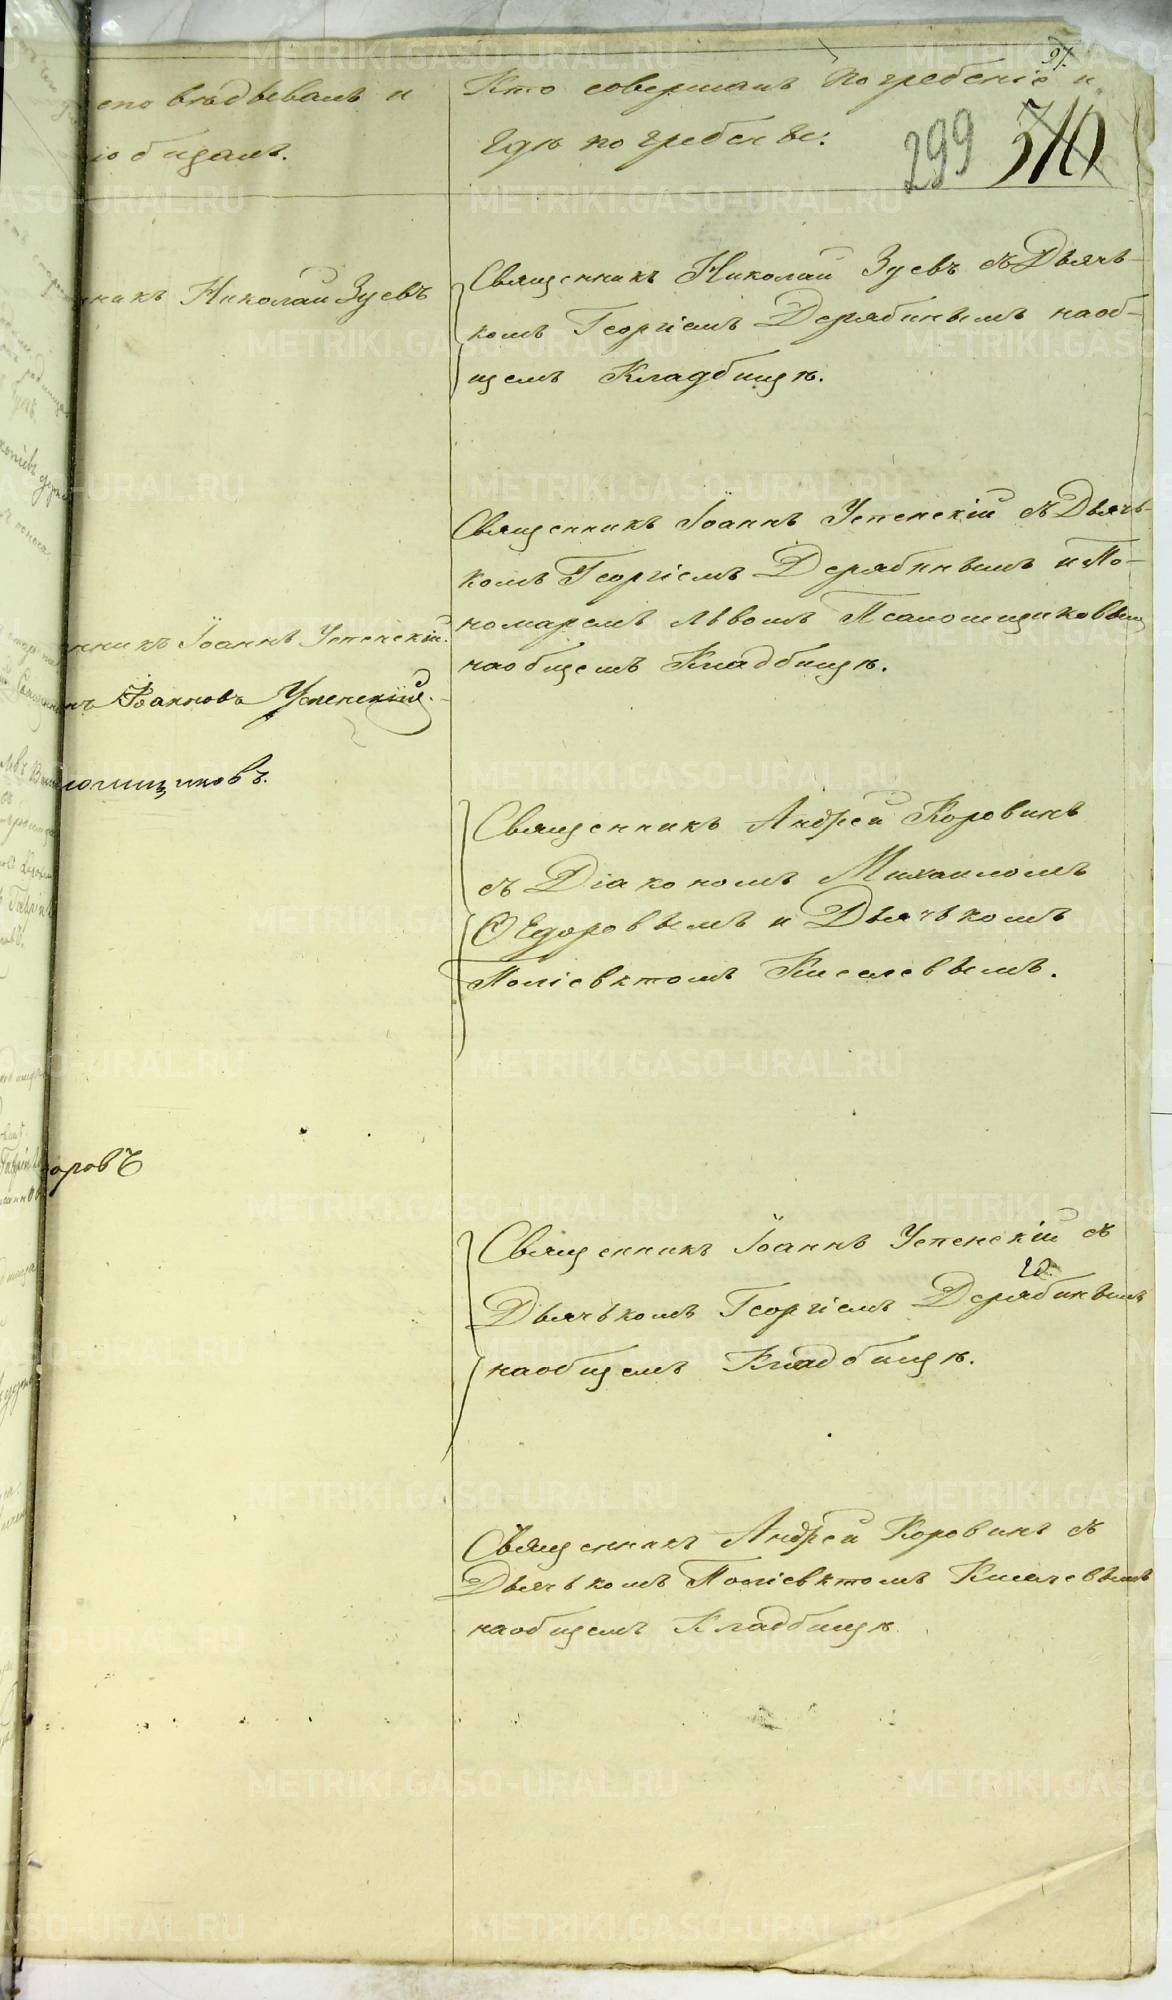 97.
299 310
еповѣдывалъ и
іобщалъ.
Кто совершалъ погребеніе и
гдѣ погребены.
никъ Николай Зуевъ
Священникъ Николай Зуевъ съ Дьячь-
комъ Георгіемъ Дерябинымъ наоб-
щемъ Кладбищѣ.
Священникъ Іоаннъ Успенскій съ Дьячь-
комъ Георгіемъ Дерябинымъ и По-
номаремъ Львомъ Псаломщиковым
наобщемъ Кладбищѣ.
нникъ Іоаннъ Успенскій.
нъ Іоанновъ Успенскій.
ломщиковъ.
Священникъ Андрей Коровинъ
съ Діакономъ Михаиломъ
Ѳедоровымъ и Дьячькомъ
Поліевктомъ Киселевымъ.
оровъ
Священникъ Іоаннъ Успенскій съ
Дьячькомъ Георгіемъ Дерябинымъ
наобщемъ Кладбищѣ.
Священникъ Андрей Коровинъ съ
Дьячькомъ Поліевктомъ Киселевымъ
наобщемъ Кладбищѣ
METRIKI.GASO-URAL.RU